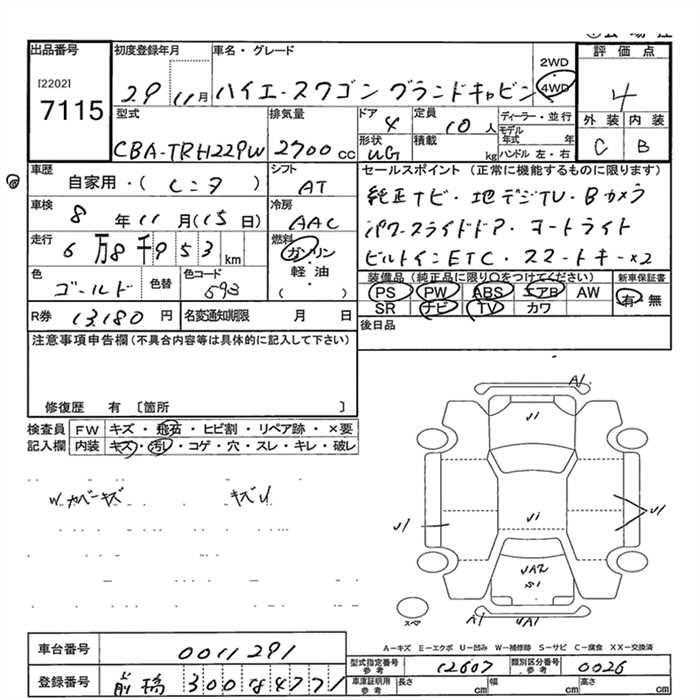 出品番号 初度登録年月 車名・グレード 評価点
[2202] 7115
29 11月 ハイエースワゴン グランドキャビン 2WD 4WD
4
外装 内装
C B
型式 排気量 ドア 定員 ディーラー・並行
CBA-TRH229W 2700cc 4 10人 モデル年式 年
形状 積載 ハンドル 左・右
WG kg
車歴 シフト セールスポイント(正常に機能するものに限ります)
自家用・(レンタ) AT
純正ナビ・地デジTV・Bカメラ
車検 冷房
8年11月(15日) AAC
パワースライドドア・オートライト
走行 燃料
6万8千953km ガソリン・軽油・( )
ビルトインETC・スマートキー×2
色 色替 色コード
ゴールド 593
装備品(純正品に限り○をつけてください) 新車保証書
PS PW ABS エアB AW 有・無
SR ナビ TV カワ
R券 13,180円 名変通知期限 月 日
後日品
注意事項申告欄(不具合内容等は具体的に記入して下さい)
修復歴 有 〔箇所 〕
検査員記入欄
FW キズ・飛石・ヒビ割・リペア跡・×要
内装 キズ・汚レ・コゲ・穴・スレ・キレ・破レ
W カバーキズ キズU
A1
U1
U1 U1 U1
UA2
S1
A1 UA1
スペア
A−キズ E−エクボ U−凹み W−補修跡 S−サビ C−腐食 XX−交換済
車台番号 0011291
型式指定番号 参考 12607 類別区分番号 参考 0026
登録番号 前橋 300 8 4771
車庫証明用 参考 長さ cm 幅 cm 高さ cm